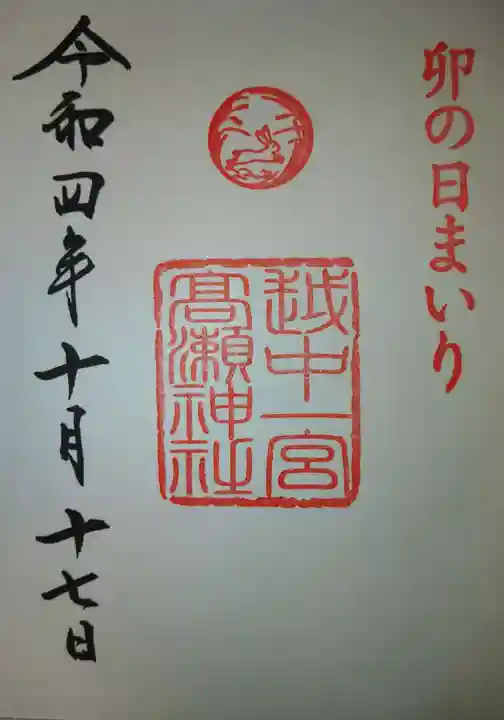 卯の日まいり
越中一宮
髙瀬神社
令和四年十月十七日